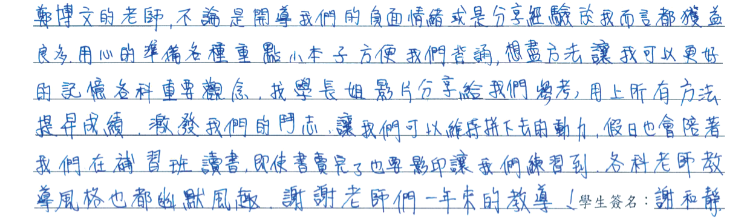 鄭博文的老師,不論是開導我們的負面情緒或是分享經驗於我而言都獲益
良多,用心的準備各種重點小本子方便我們背誦,想盡方法讓我可以更好
的記憶各科重要觀念,找學長姐影片分享給我們參考,用上所有方法
提昇成績,激發我們的鬥志,讓我們可以維持拼下去的動力,假日也會陪著
我們在補習班讀書,即使書賣完了也要影印讓我們練習到,各科老師教
導風格也都幽默風趣,謝謝老師們一年來的教導!學生簽名:謝和靜